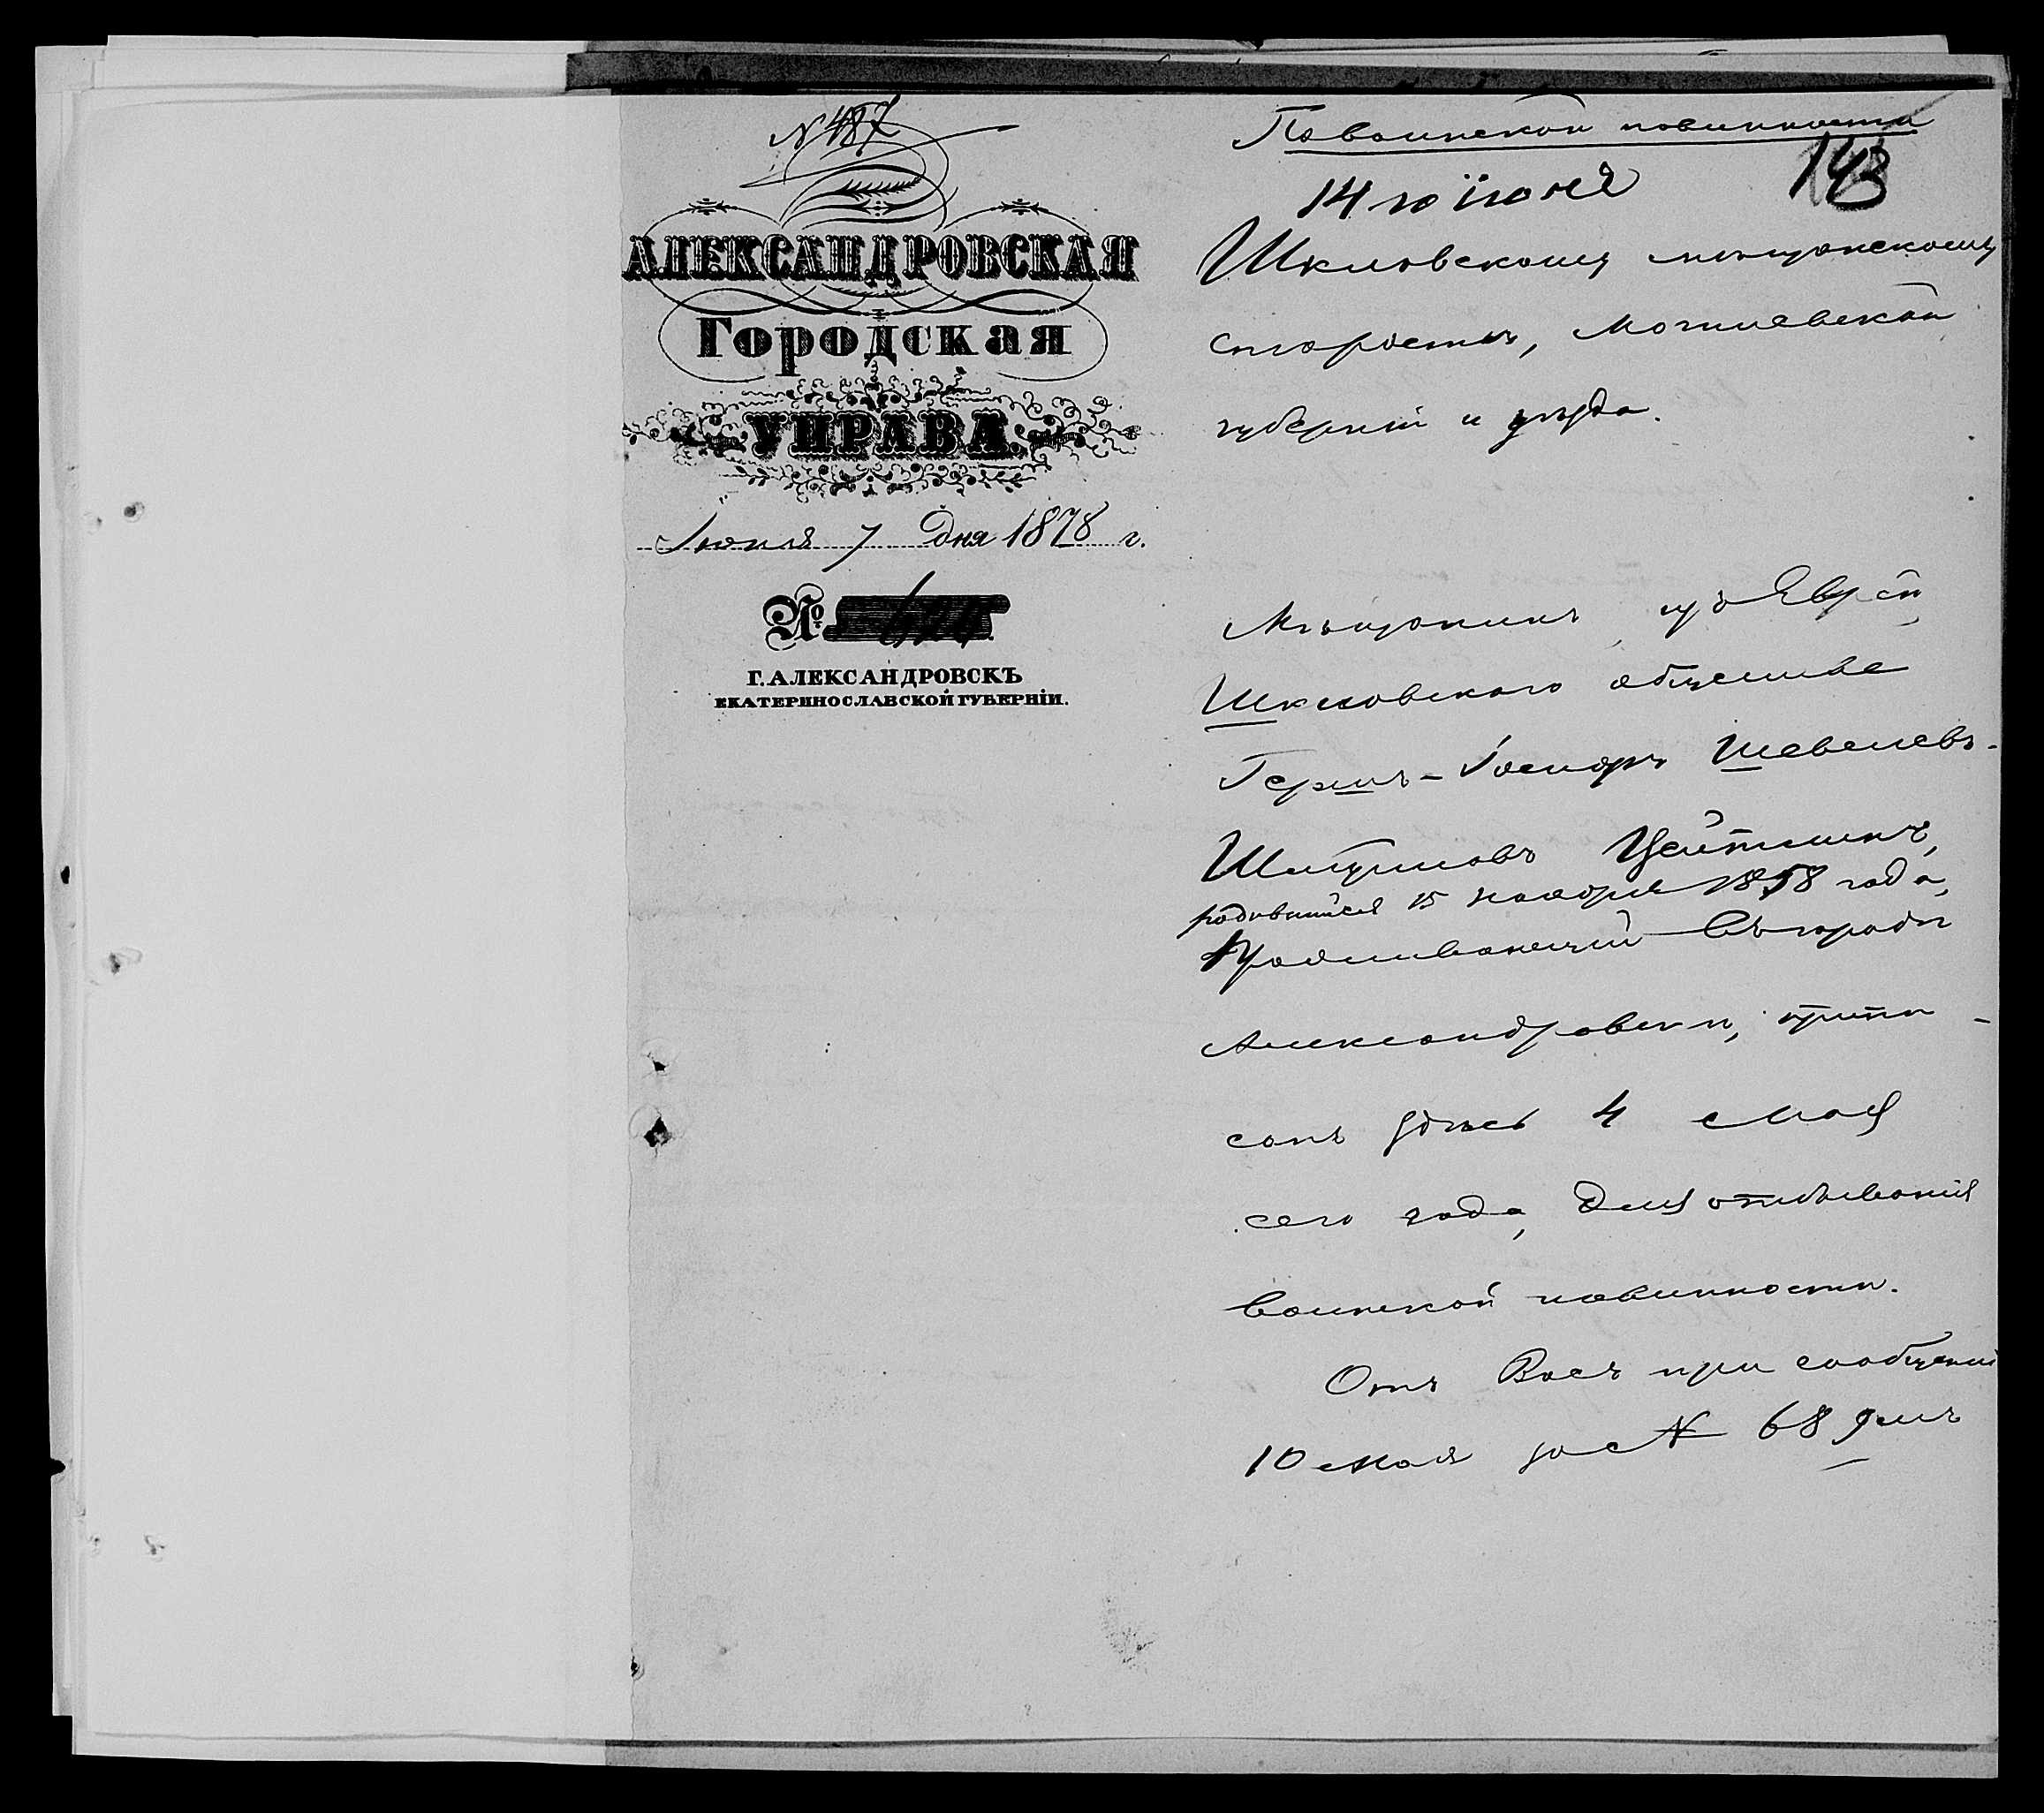 N 487
АЛЕКСАНДРОВСКАЯ
Городская
УПРАВА.
Іюня 7 дня 1878 г.
№ 624
Г. АЛЕКСАНДРОВСКЪ
ЕКАТЕРИНОСЛАВСКОЙ ГУБЕРНІИ.
По воинской повинности
143
14го іюня
Шкловскому мѣщанскому
старостѣ, Могилевской
губерніи и уѣзда.
Мѣщанинъ изъ Еврей
Шкловскаго общества
Гершъ-Іосифъ Шевелевъ-
Шмуиловъ Цейтлинъ,
родившійся 15 ноября 1858 года,
проживающій въ городѣ
Александровскѣ, припи-
санъ здѣсь 4 мая
сего года, для отбыванія
воинской повинности.
Отъ Васъ при сообщеніи
10 мая за N 68